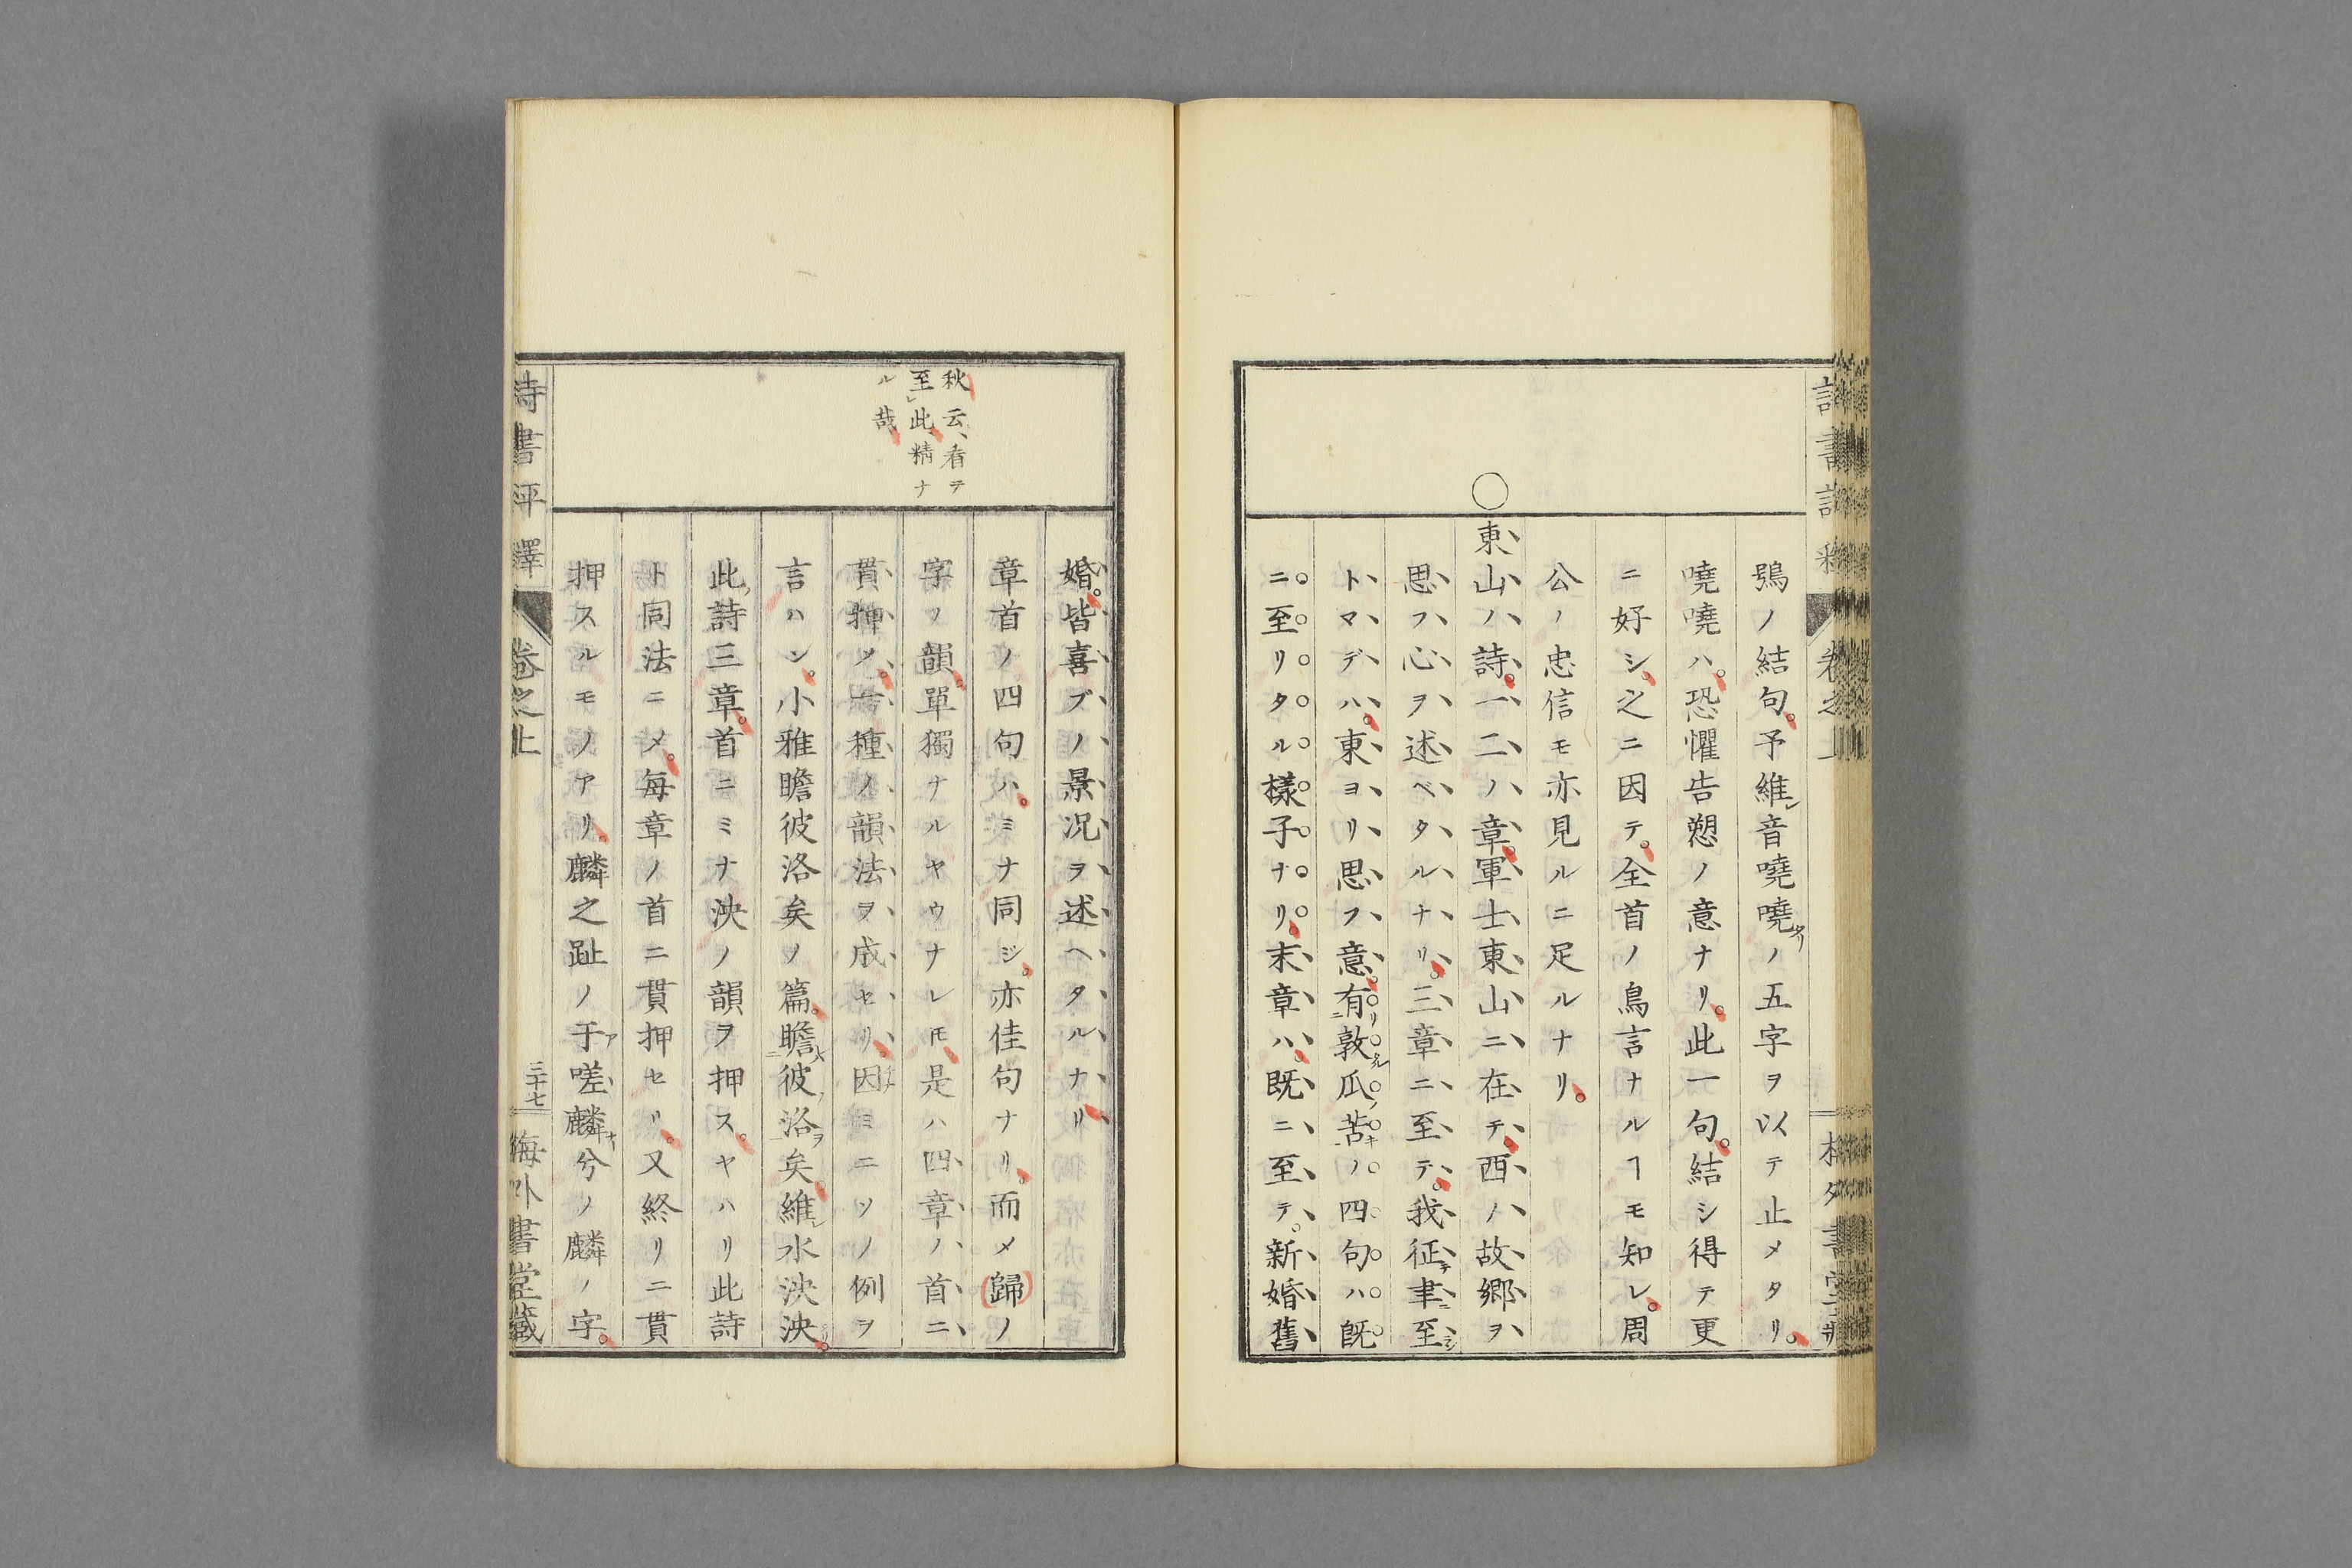 鴞ノ結句。予維音嘵嘵ノ五字ヲ以テ止メタリ。
嘵嘵ハ。恐懼告愬ノ意ナリ。此一句。結シ得テ更
ニ好シ。之ニ因テ。全首ノ鳥言ナルヿモ知レ。周
公ノ忠信モ亦見ルニ足ルナリ。
○東山ノ詩。一二ノ章。軍士東山ニ在テ。西ノ故郷ヲ
思フ心ヲ述ベタルナリ。三章ニ至テ。我征聿至
トマデハ。東ヨリ思フ意。有敦瓜苦ノ四句ハ既
ニ至リタル樣子ナリ。末章ハ。既ニ至テ。新婚舊
秋云、看テ
至此、精ナ
ル哉
婚。皆喜ブノ景况ヲ述ヘタルナリ
章首ノ四句ハ。ミナ同ジ。亦佳句ナリ。而メ歸ノ
字ノ韻。單獨ナルヤウナレ𪜈是ハ四章ノ首ニ
貫押ソ。一種ノ韻法ヲ成セリ。因ミニソノ例ヲ
言ハン。小雅瞻彼洛矣ノ篇。瞻彼洛矣。維水泱泱。
此詩三章。首ニミナ泱ノ韻ヲ押ス。ヤハリ此詩
ト同法ニメ。每章ノ首ニ貫押セリ。又終リニ貫
押スルモノアリ。麟之趾ノ于嗟麟兮ノ麟ノ字。
詩書評釋
卷之上
三十七
梅外書堂藏